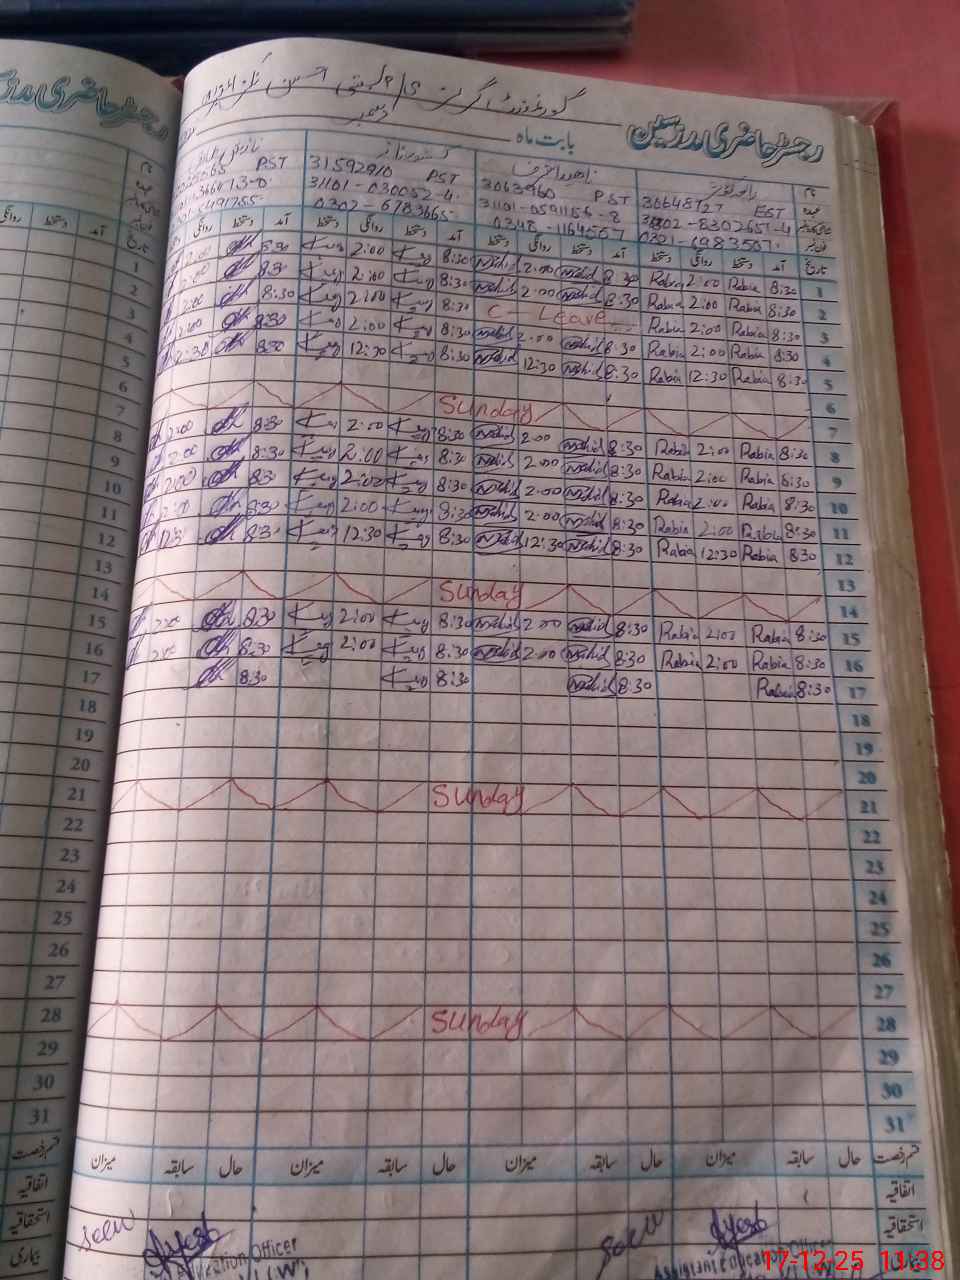 رجسٹر حاضری مدرسین
گورنمنٹ گرلز
بابت ماہ دسمبر
30648727 EST 3063960 PST 31592910 PST PST
31302-8302651-4 31101-0591156-8 31101-030052-4
0348-1164507 0302-6783665
تاریخ آمد دستخط روانگی دستخط آمد دستخط روانگی دستخط آمد دستخط روانگی دستخط آمد دستخط روانگی
1 8:30 Rabia 2:00 Rabia 8:30 Nahid 2:00 Nahid 8:30 2:00 8:30 2:00
2 8:30 Rabia 2:00 Rabia 8:30 Nahid 2:00 Nahid 8:30 2:00 8:30 2:00
3 8:30 Rabia 2:00 Rabia C- Leave 8:30 2:00 8:30 2:00
4 8:30 Rabia 2:00 Rabia 8:30 Nahid 2:00 Nahid 8:30 2:00 8:30 2:00
5 8:30 Rabia 12:30 Rabia 8:30 Nahid 12:30 Nahid 8:30 12:30 8:30 12:30
6
7 Sunday
8 8:30 Rabia 2:00 Rabia 8:30 Nahid 2:00 Nahid 8:30 2:00 8:30 2:00
9 8:30 Rabia 2:00 Rabia 8:30 Nahid 2:00 Nahid 8:30 2:00 8:30 2:00
10 8:30 Rabia 2:00 Rabia 8:30 Nahid 2:00 Nahid 8:30 2:00 8:30 2:00
11 8:30 Rabia 2:00 Rabia 8:30 Nahid 2:00 Nahid 8:30 2:00 8:30 2:00
12 8:30 Rabia 12:30 Rabia 8:30 Nahid 12:30 Nahid 8:30 12:30 8:30
13
14 Sunday
15 8:30 Rabia 2:00 Rabia 8:30 Nahid 2:00 Nahid 8:30 2:00 8:30 2:00
16 8:30 Rabia 2:00 Rabia 8:30 Nahid 2:00 Nahid 8:30 2:00 8:30 2:00
17 8:30 Rabia 8:30 Nahid 8:30 8:30
18
19
20
21 Sunday
22
23
24
25
26
27
28 Sunday
29
30
31
قسم رخصت حال سابقہ میزان حال سابقہ میزان حال سابقہ میزان حال سابقہ میزان
اتفاقیہ
استحقاقیہ
بیماری
Seen Seen
Assistant Education Officer
Education Officer
(W)
17-12-25 11:38